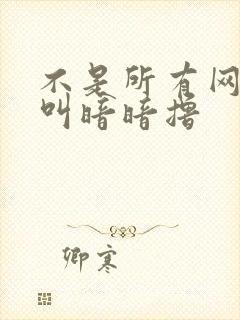 不是所有网
叫暗暗撸
卿寒